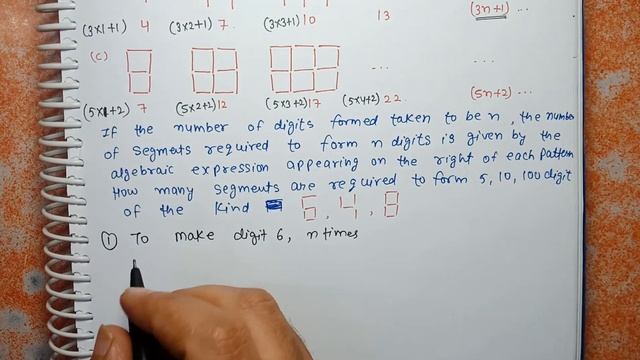 (3x1+1) 4 (3x2+1) 7 (3x3+1) 10 13 (3n+1) ...
(C) ... ...
(5x1+2) 7 (5x2+2) 12 (5x3+2) 17 (5x4+2) 22 (5n+2) ...
If the number of digits formed taken to be n, the number
of segmats required to form n digits is given by the
algebraic expression appearing on the right of each pattern
How many segments are required to form 5, 10, 100 digit
of the kind 6, 4, 8
① To make digit 6, n times